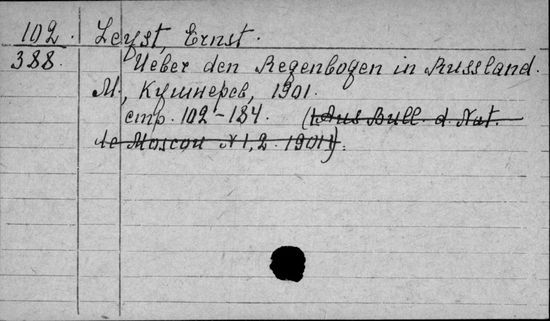 102. Leyst, Ernst.
388. Ueber den Regenbogen in Russland.
М., Кушнерев, 1901.
стр. 102-184. (Aus Bull. d. Nat.
de Moscou N 1, 2. 1901).